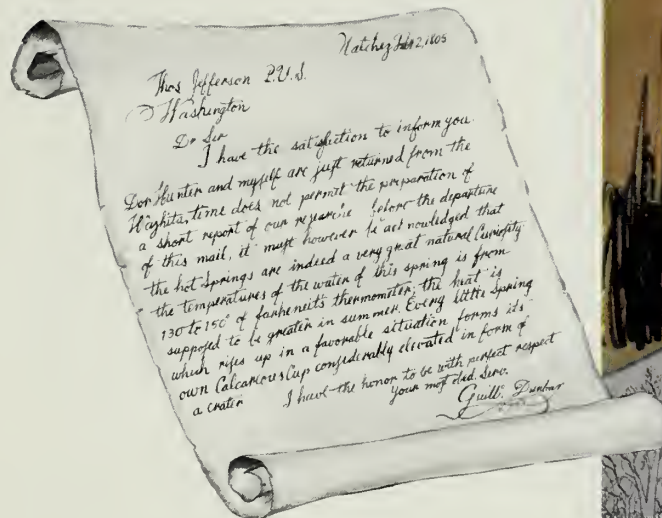 Natchez Feb 2, 1805
Thos Jefferson P.U.S.
Washington
Dr Sir
I have the satisfaction to inform you
Dor. Hunter and myself are just returned from the
Washita, time does not permit the preparation of
a short report of our researche before the departure
of this mail, it must however be acknowledged that
the hot Springs are indeed a very great natural Curiosity
the temperatures of the water of this spring is from
130 to 150° of farheneits thermometer; the heat is
supposed to be greater in summer. Every little spring
which rises up in a favorable situation forms its
own Calcarious Cup considerably elevated in form of
a crater I have the honor to be with perfect respect
your most obed. Serv.
Guill. Dunbar